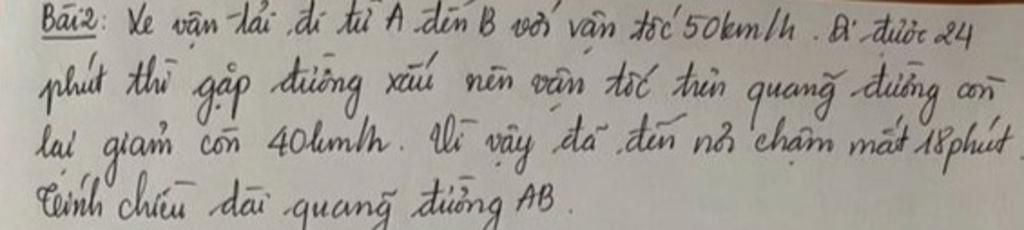 Bài 2: Xe vận tải đi từ A đến B với vận tốc 50km/h. Đi được 24
phút thì gặp đường xấu nên vận tốc trên quãng đường còn
lại giảm còn 40km/h. Vì vậy đã đến nơi chậm mất 18 phút.
Tính chiều dài quãng đường AB.